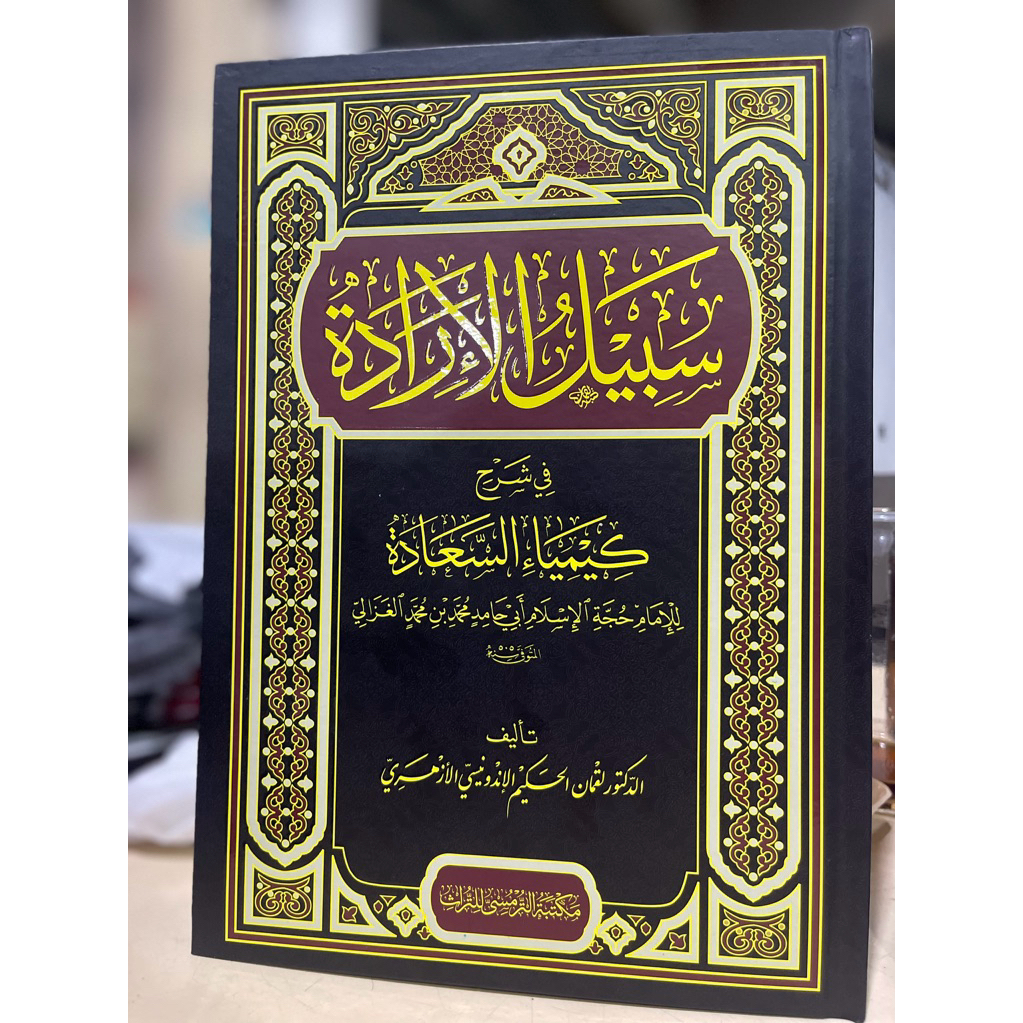 سَبِيلُ الْإِرَادَةُ
فِي شَرْحِ
كِيمْيَاءِ السَّعَادَةُ
لِلْإِمَامِ حُجَّةِ الْإِسْلَامِ أَبِي حَامِدٍ مُحَمَّدِ بْنِ مُحَمَّدٍ الْغَزَالِيِّ
المتوفى سنة ٥٠٥
تأليف
الدكتور لقمان الحكيم الإندونيسي الأزهري
مكتبة الترمسي للتراث